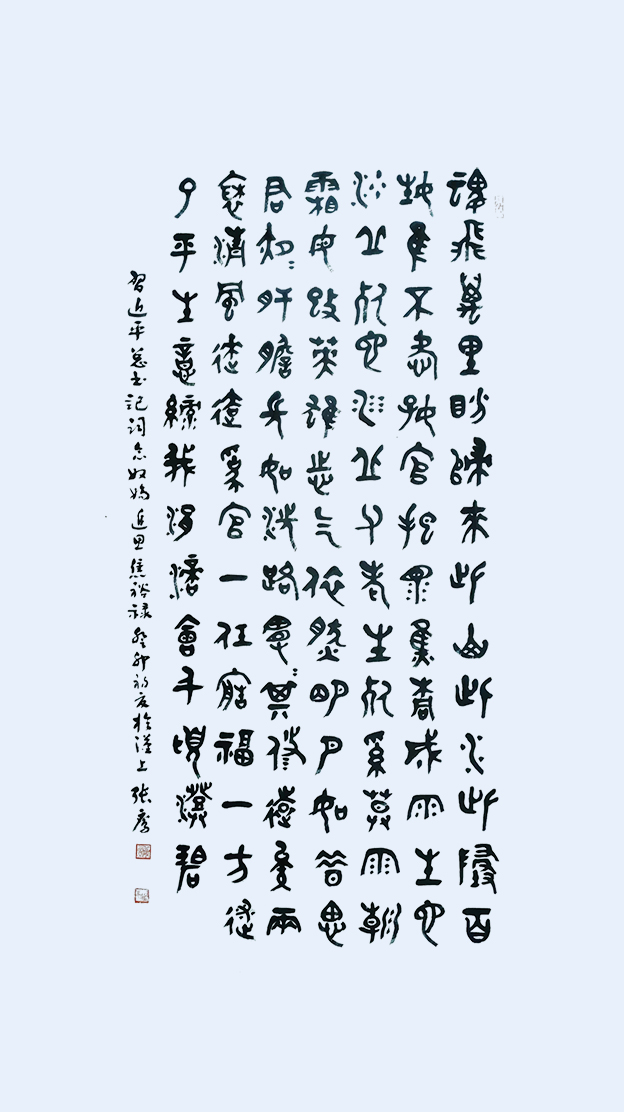 魂飛萬里盼歸來此山此水此地百
姓誰不愛好官把淚焦桐成雨生也
沙丘死也沙丘父老生死系暮雨朝
霜毋改英雄志气依然明月如昔思
君夜〻肝膽長如洗路漫〻其修遠矣兩
袖清風徠去為官一任造福一方遂
了平生意綠我涓滴會千頃澄碧
習近平總书記詞念奴嬌追思焦裕禄癸卯初夏於漢上張